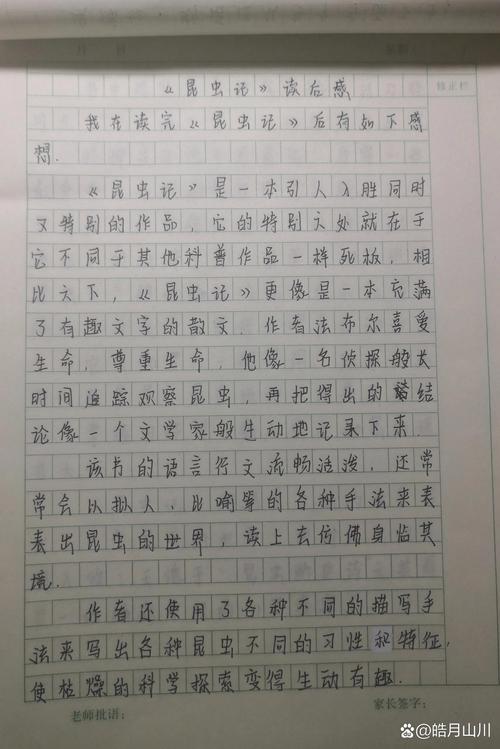 月 日
修正栏
《昆虫记》读后感
我在读完《昆虫记》后有如下感
想.
《昆虫记》是一本引人入胜同时
又特别的作品，它的特别之处就在于
它不同于其他科普作品一样死板，相
比之下，《昆虫记》更像是一本充满
了有趣文字的散文.作者法布尔喜爱
生命，尊重生命，他像一名侦探般长
时间追踪观察昆虫，再把得出的结
论像一个文学家般生动地记录下来.
该书的语言行文流畅活泼，还常
常会以拟人、比喻等的各种手法来表
表出昆虫的世界，读上去仿佛身临其
境.
作者还使用了各种不同的描写手
法来写出各种昆虫不同的习性和特征，
使枯燥的科学探索变得生动有趣.
老师批语：
家长签字：
@皓月山川